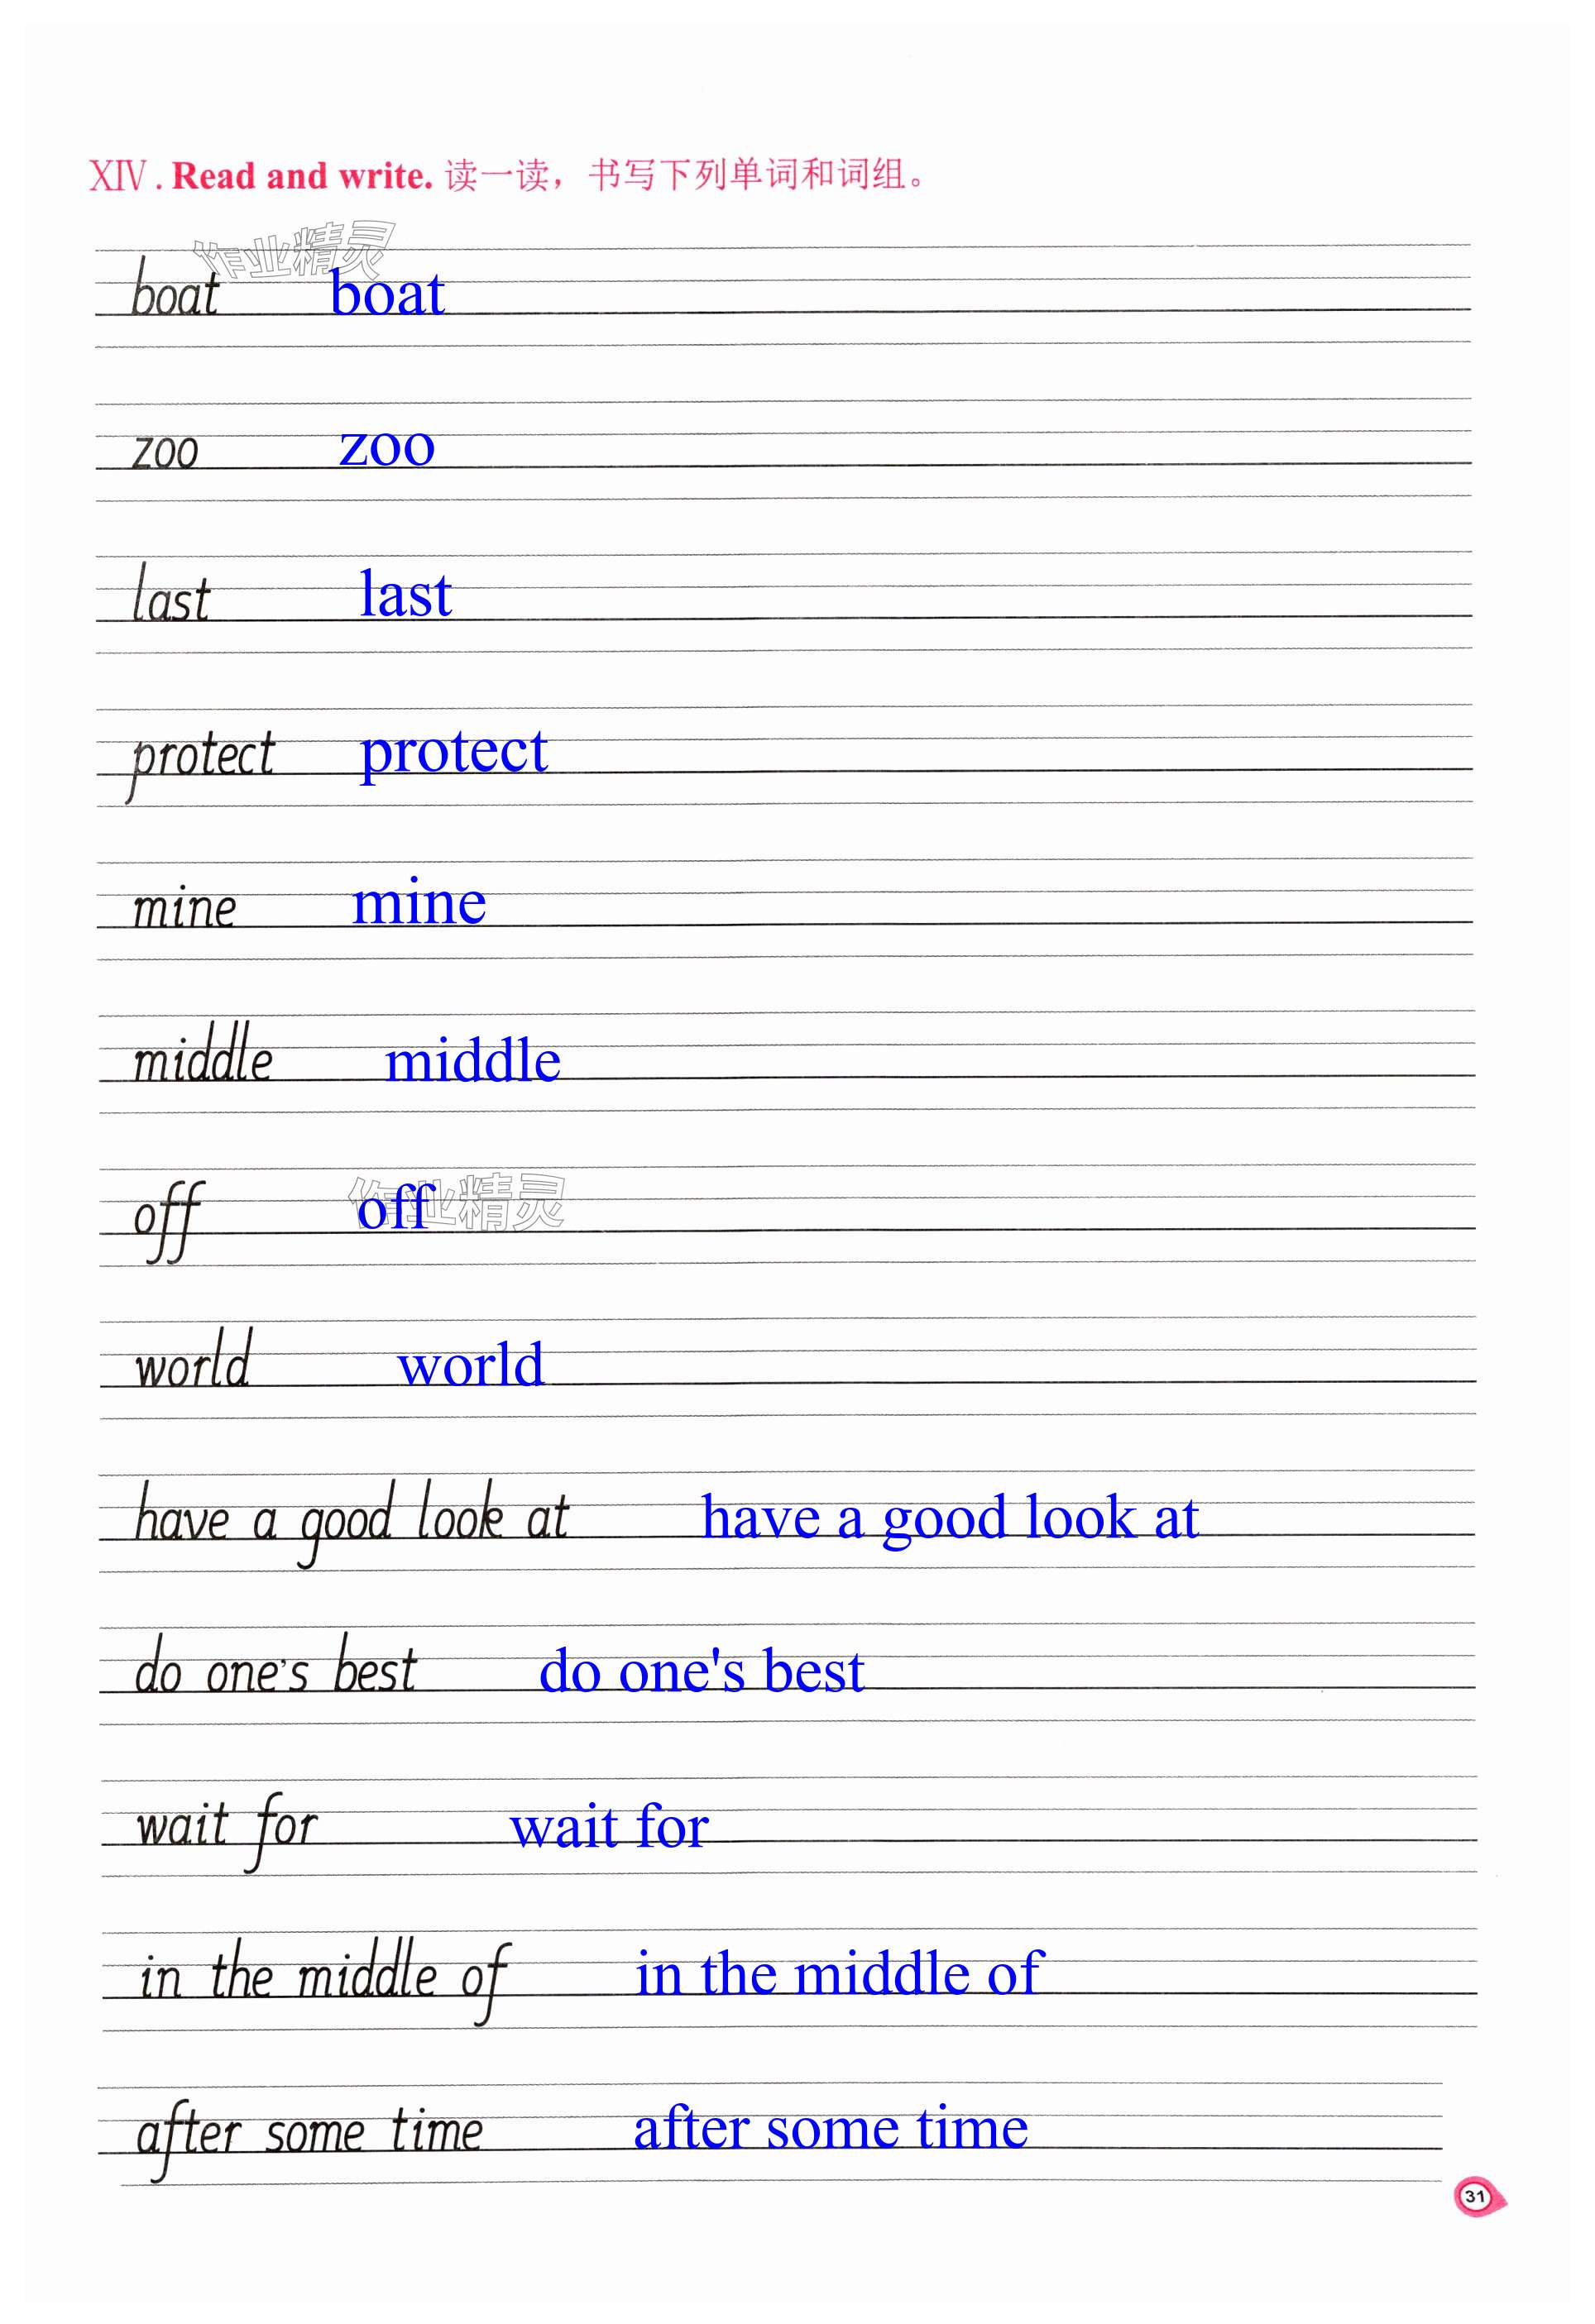 XIV. Read and write. 读一读，书写下列单词和词组。
作业精灵
boat boat
zoo zoo
last last
protect protect
mine mine
middle middle
off off 作业精灵
world world
have a good look at have a good look at
do one's best do one's best
wait for wait for
in the middle of in the middle of
after some time after some time
31